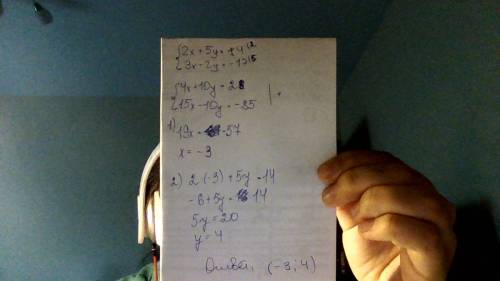 {2x+5y=14 |2
{3x-2y=-17 |5
{4x+10y=28
{15x-10y=-85 | +
1) 19x=-57
x=-3
2) 2(-3)+5y=14
-6+5y=14
5y=20
y=4
Ответ: (-3;4)